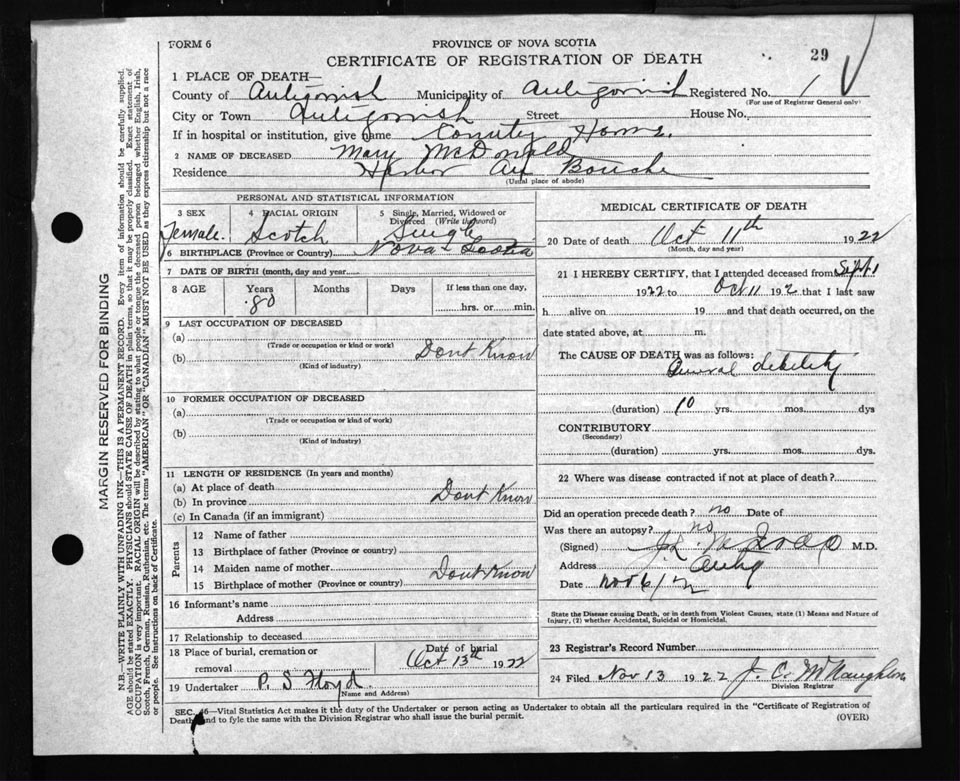 FORM 6
PROVINCE OF NOVA SCOTIA
CERTIFICATE OF REGISTRATION OF DEATH
29
1 PLACE OF DEATH—
County of Antigonish Municipality of Antigonish Registered No. 1
(For use of Registrar General only)
City or Town Antigonish Street House No.
If in hospital or institution, give name County Home.
2 NAME OF DECEASED Mary McDonald
Residence Harbor Au Bouche
(Usual place of abode)
PERSONAL AND STATISTICAL INFORMATION
3 SEX
Female.
4 RACIAL ORIGIN
Scotch
5 Single, Married, Widowed or Divorced (Write the word)
Single
6 BIRTHPLACE (Province or Country) Nova Scotia
7 DATE OF BIRTH (month, day and year)
8 AGE Years Months Days If less than one day,
80 hrs. or min.
9 LAST OCCUPATION OF DECEASED
(a)
(Trade or occupation or kind or work)
(b) Dont Know
(Kind of industry)
10 FORMER OCCUPATION OF DECEASED
(a)
(Trade or occupation or kind of work)
(b)
(Kind of industry)
11 LENGTH OF RESIDENCE (In years and months)
(a) At place of death
(b) In province Dont Know
(c) In Canada (if an immigrant)
Parents
12 Name of father
13 Birthplace of father (Province or country)
14 Maiden name of mother Dont Know
15 Birthplace of mother (Province or country)
16 Informant's name
Address
17 Relationship to deceased
18 Place of burial, cremation or removal
Date of burial
Oct 13th 1922
19 Undertaker P. S Floyd
(Name and Address)
MEDICAL CERTIFICATE OF DEATH
20 Date of death Oct 11th 1922
(Month, day and year)
21 I HEREBY CERTIFY, that I attended deceased from Sept 1
1922 to Oct 11 192 that I last saw
h alive on 19 and that death occurred, on the
date stated above, at m.
The CAUSE OF DEATH was as follows:
General debility
(duration) 10 yrs. mos. dys
CONTRIBUTORY
(Secondary)
(duration) yrs. mos. dys.
22 Where was disease contracted if not at place of death?
Did an operation precede death? no Date of
Was there an autopsy? no
(Signed) M.D.
Address Antig
Date Nov 6/22
State the Disease causing Death, or in death from Violent Causes, state (1) Means and Nature of
Injury, (2) whether Accidental, Suicidal or Homicidal.
23 Registrar's Record Number
24 Filed Nov 13 1922 J. C. McNaughton
Division Registrar
SEC. 46—Vital Statistics Act makes it the duty of the Undertaker or person acting as Undertaker to obtain all the particulars required in the "Certificate of Registration of
Death" and to fyle the same with the Division Registrar who shall issue the burial permit.
(OVER)
MARGIN RESERVED FOR BINDING
N.B.—WRITE PLAINLY WITH UNFADING INK—THIS IS A PERMANENT RECORD. Every item of information should be carefully supplied.
AGE should be stated EXACTLY. PHYSICIANS should STATE CAUSE OF DEATH in plain terms, so that it may be properly classified. Exact statement of
OCCUPATION is very important. RACIAL ORIGIN will be described by stating to what people or tongue the deceased person belonged whether English, Irish,
Scotch, French, German, Russian, Ruthenian, etc. The terms "AMERICAN" OR "CANADIAN" MUST NOT BE USED as they express citizenship but not a race
or people. See instructions on back of Certificate.